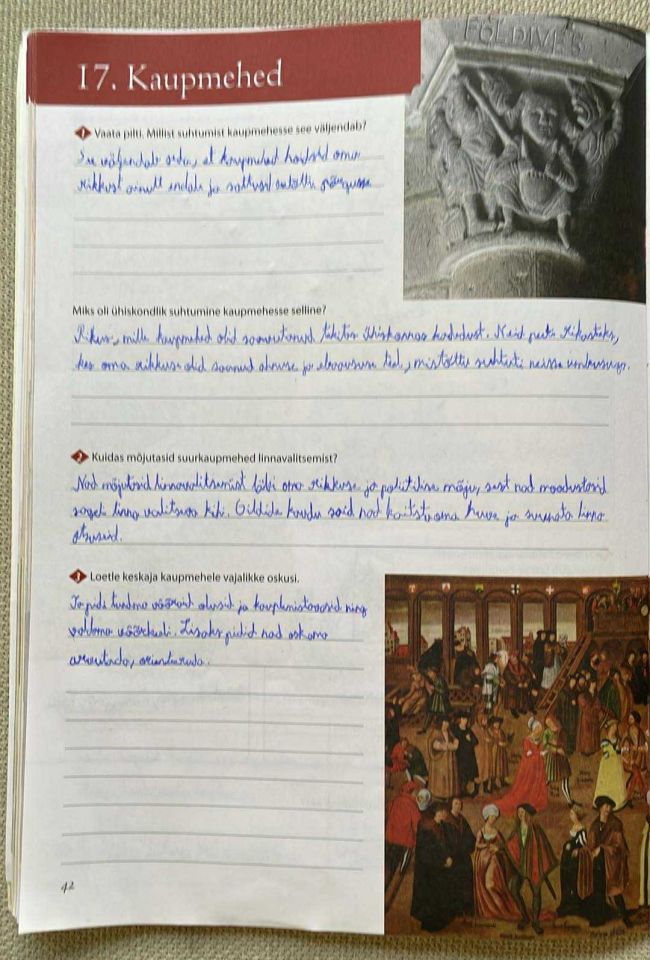 FOLDIVES
17. Kaupmehed
1 Vaata pilti. Millist suhtumist kaupmehesse see väljendab?
See väljendab seda, et kaupmehed hoidsid oma
rikkust ainult endale ja sattusid seetõttu põrgusse
Miks oli ühiskondlik suhtumine kaupmehesse selline?
Rikkus, mille kaupmehed olid saavutanud tekitas ühiskonnas kadedust. Neid peeti rikasteks,
kes oma rikkuse olid saanud ahnuse ja ebaaususe teel, mistõttu suhtuti neisse umbusuga.
2 Kuidas mõjutasid suurkaupmehed linnavalitsemist?
Nad mõjutasid linnavalitsemist läbi oma rikkuse ja poliitilise mõju, sest nad moodustasid
sageli linna valitseva kihi. Gildide kaudu said nad kaitsta oma huve ja suunata linna
otsuseid.
3 Loetle keskaja kaupmehele vajalikke oskusi.
Ta pidi tundma võõraid olusid ja kauplemistavasid ning
valdma võõrkeeli. Lisaks pidid nad oskama
arvutada, orienteeruda.
42